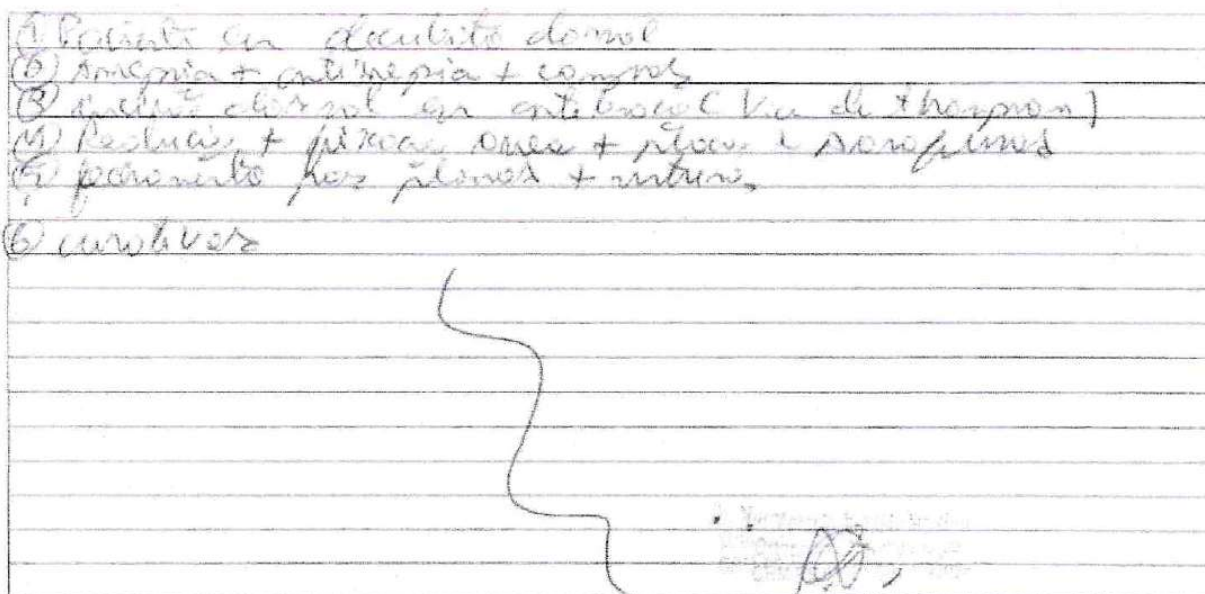 ① Paciente em decubito dorsal
② Assepsia + antissepsia + campos
③ incisão dorsal em antebraço ( Via de thompson )
④ Redução + fixação ossea + placa e parafusos
⑤ fechamento por planos + sutura
⑥ curativos